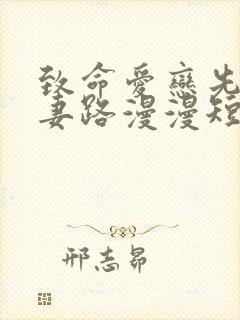 致命爱恋先
妻路漫漫短
邢志昴